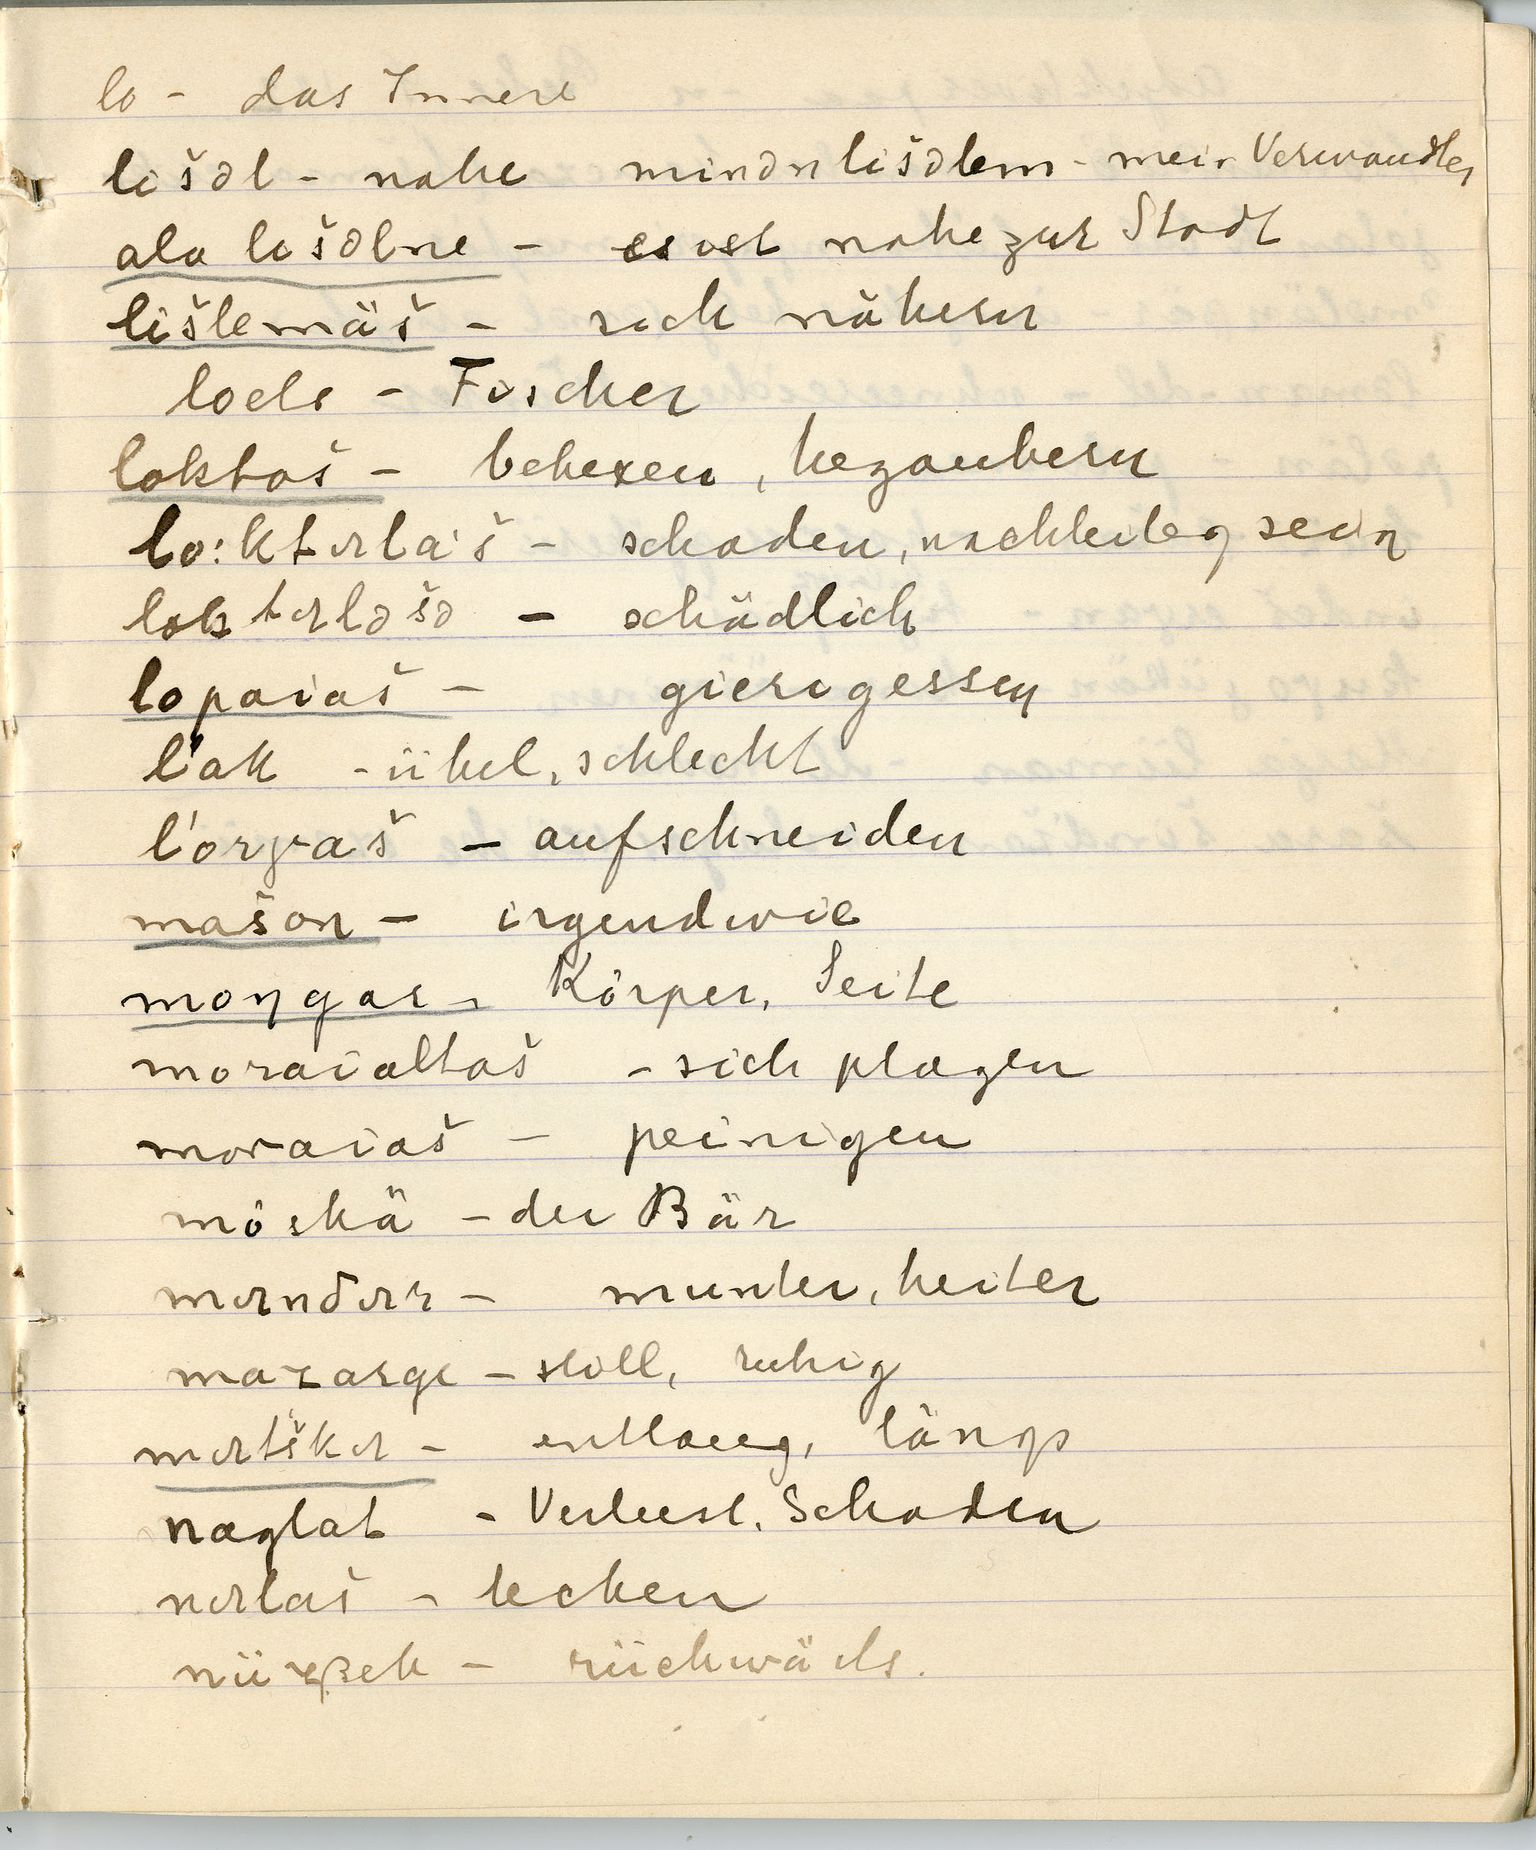 lo - das Innere
lišəl - nahe minən lišəlem - mein Verwandter
ala lišəlne - es ist nahe zur Stadt
lišlemäš - sich nähern
loels - Fischer
loktas - behexen, bezaubern
lo:kt́əlaš - schaden, nachteilig sein
lokt́ələšə - schädlich
lopaiaš - gierig essen
l'ak - übel, schlecht
l'orγaš - aufschneiden
mašan - irgendwie
moŋgər - Körper, Seite
moraialtaš - sich plagen
moraiaš - peinigen
möskä - der Bär
mendər - munter, heiter
mazarge - still, ruhig
mətškə - entlang, längs
naglat - Verlust, Schaden
nəlaš - lecken
rückwärts.